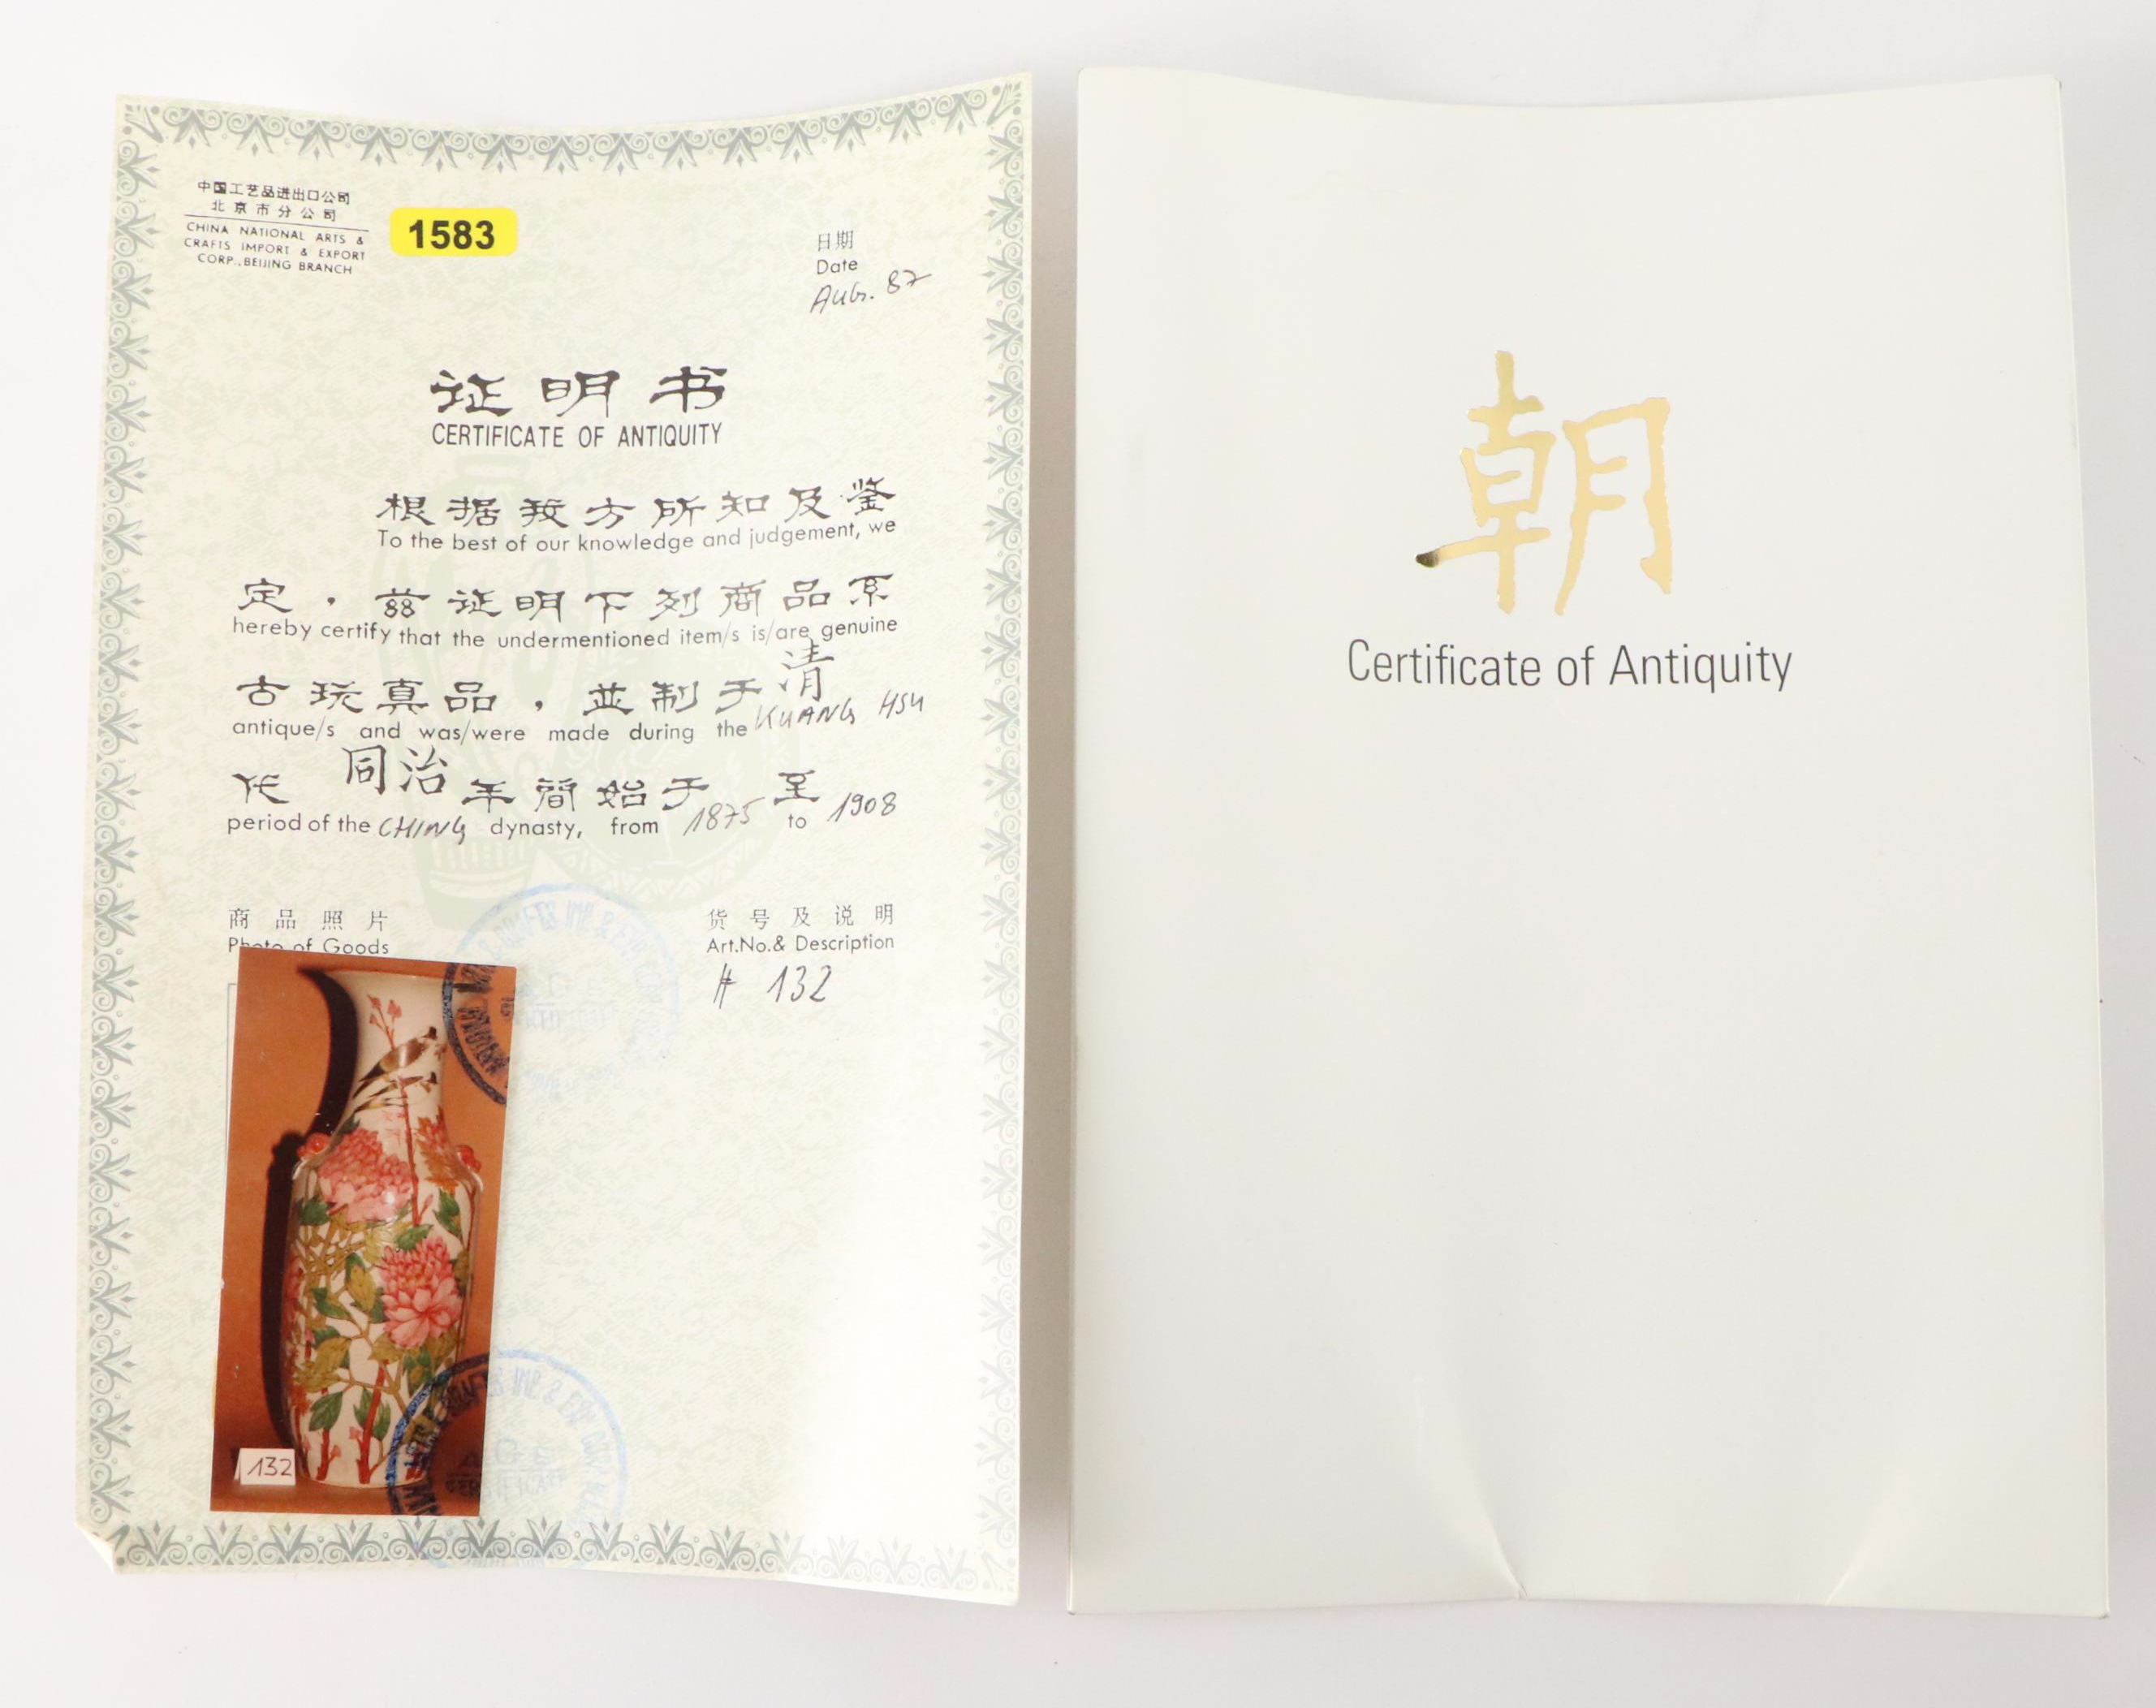 中国工艺品进出口公司
北京市分公司
CHINA NATIONAL ARTS &
CRAFTS IMPORT & EXPORT
CORP., BEIJING BRANCH
1583
日期
Date
AUG. 87
证明书
CERTIFICATE OF ANTIQUITY
根据我方所知及鉴
To the best of our knowledge and judgement, we
定，兹证明下列商品系
hereby certify that the undermentioned item/s is/are genuine
古玩真品，並制于清
antique/s and was/were made during the KUANG HSU
代 同治 年间始于 至
period of the CHING dynasty, from 1875 to 1908
商品照片
Photo of Goods
货号及说明
Art.No.& Description
# 132
132
朝
Certificate of Antiquity